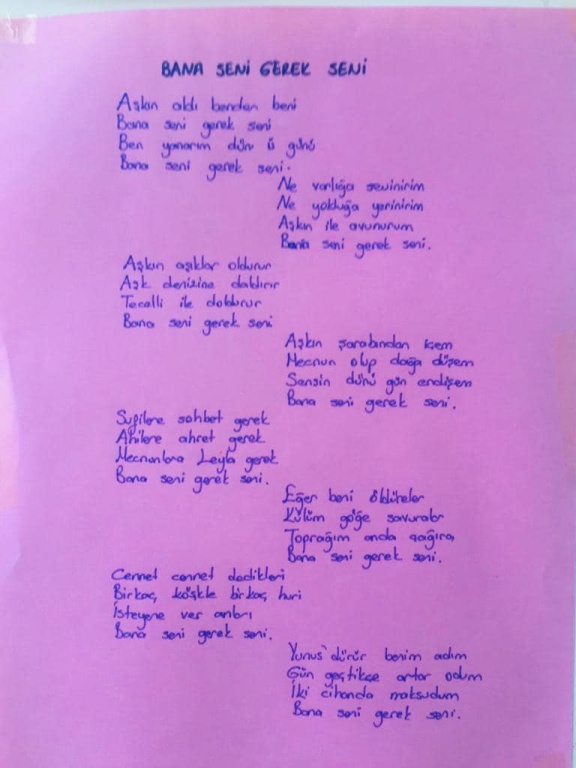 BANA SENİ GEREK SENİ
Aşkın aldı benden beni
Bana seni gerek seni
Ben yanarım dün ü günü
Bana seni gerek seni.
Ne varlığa sevinirim
Ne yokluğa yerinirim
Aşkın ile avunurum
Bana seni gerek seni.
Aşkın aşıklar oldurur
Aşk denizine daldırır
Tecelli ile doldurur
Bana seni gerek seni
Aşkın şarabından içem
Mecnun olup dağa düşem
Sensin dünü gün endişem
Bana seni gerek seni.
Sufilere sohbet gerek
Ahilere ahret gerek
Mecnunlara Leyla gerek
Bana seni gerek seni.
Eğer beni öldüreler
Külüm göğe savuralar
Toprağım anda çağıra
Bana seni gerek seni.
Cennet cennet dedikleri
Birkaç köşkle birkaç huri
İsteyene ver anları
Bana seni gerek seni.
Yunus'dürür benim adım
Gün geçtikçe artar odum
İki cihanda maksudum
Bana seni gerek seni.